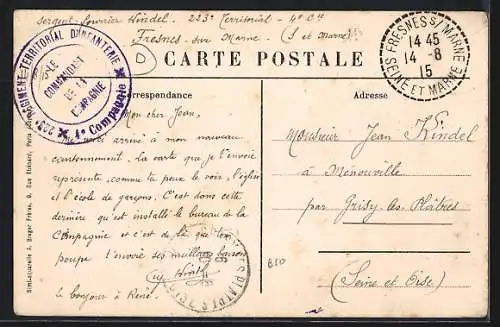 Sergent-fourrier Kindel. 223e Territorial - 4e Cie
Fresnes sur Marne. (S et Marne)
CARTE POSTALE
223e REGIMENT TERRITORIAL D'INFANTERIE
LE
COMMANDANT
DE LA
COMPAGNIE
4e Compagnie
FRESNES S/ MARNE
14 45
14 - 8
15
SEINE ET MARNE
Correspondance
Adresse
Mon cher Jean,
arrivé à mon nouveau
cantonnement, la carte que je t'envoie
représente, comme tu peux le voir, l'église
et l'école de garçons. C'est dans cette
dernière qu'est installé le bureau de la
Compagnie et c'est de là que ton
poupe t'envoie ses meilleurs baisers
le bonjour à René.
Monsieur Jean Kindel
à Menouville
par Grisy-les-Plâtres
(Seine et Oise)
B10
Simi-Aquarelle A. Breger Frères, 9, Rue Thénard, Paris